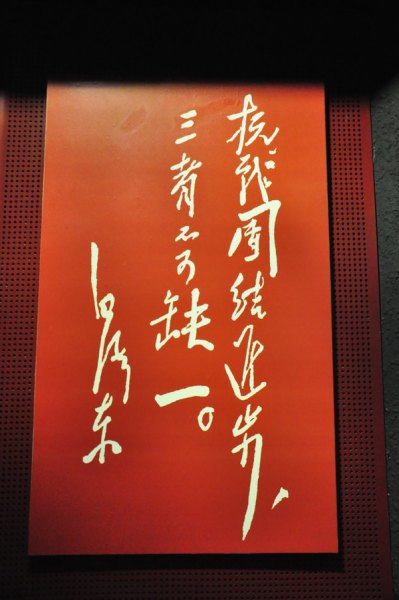 抗战团结进步，
三者不可缺一。
毛泽东